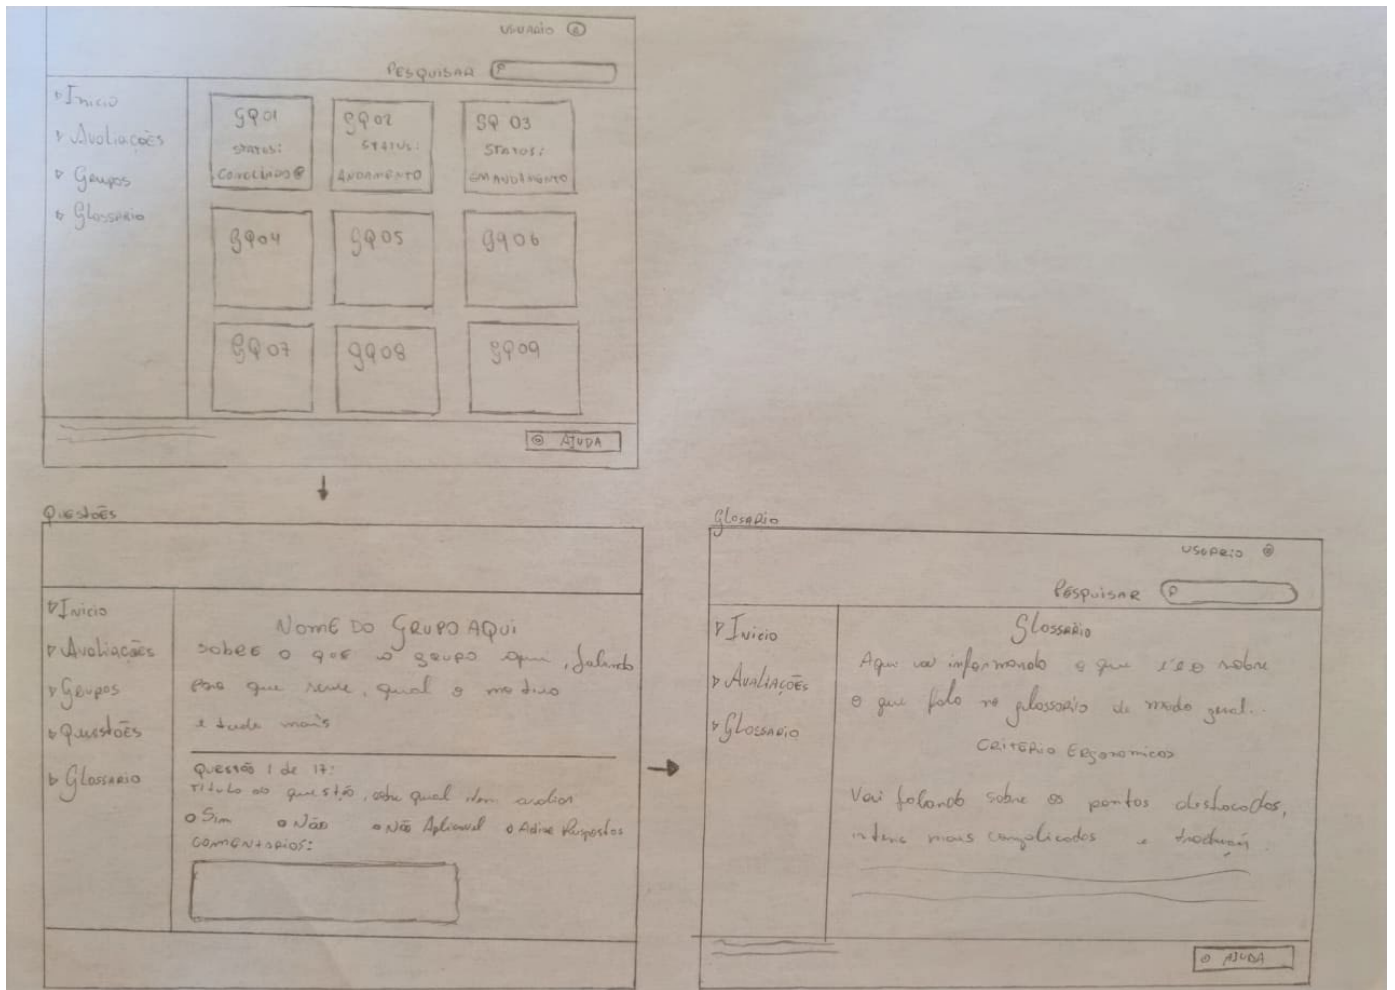 USUARIO
PESQUISAR
Inicio
Avaliações
Grupos
Glossario
GQ01
STATUS:
CONCLUIDO
GQ02
STATUS:
ANDAMENTO
GQ 03
STATUS:
EM ANDAMENTO
GQ04
GQ05
GQ06
GQ07
GQ08
GQ09
AJUDA
Questões
Inicio
Avaliações
Grupos
Questões
Glossario
NOME DO GRUPO AQUI
sobre o que o grupo aqui, falando
para que serve, qual o motivo
e tudo mais
Questão 1 de 17:
Titulo da questão, sobre qual item avaliar
Sim Não Não Aplicavel Adiar Respostas
COMENTARIOS:
Glosario
USUARIO
PESQUISAR
Inicio
Avaliações
Glossario
Glossario
Aqui vai informando o que é e o sobre
o que falo no glossario de modo geral...
CRITERIO ERGONOMICOS
Vai falando sobre os pontos
mais complicados e
AJUDA